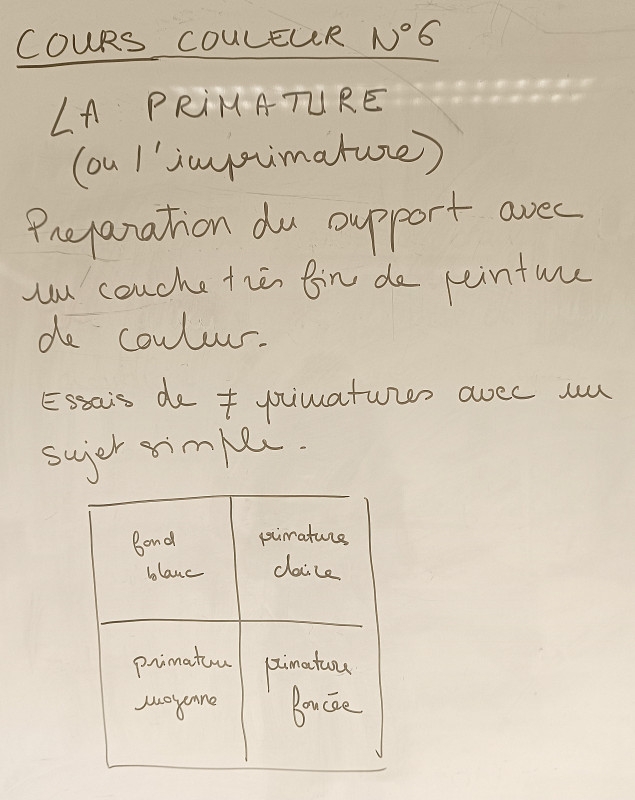 COURS COULEUR N°6
LA PRIMATURE
(ou l'imprimature)
Preparation du support avec
un couche très fine de peinture
de couleur.
Essais de ≠ primatures avec un
sujet simple.
fond
blanc
primature
claire
primature
moyenne
primature
foncée